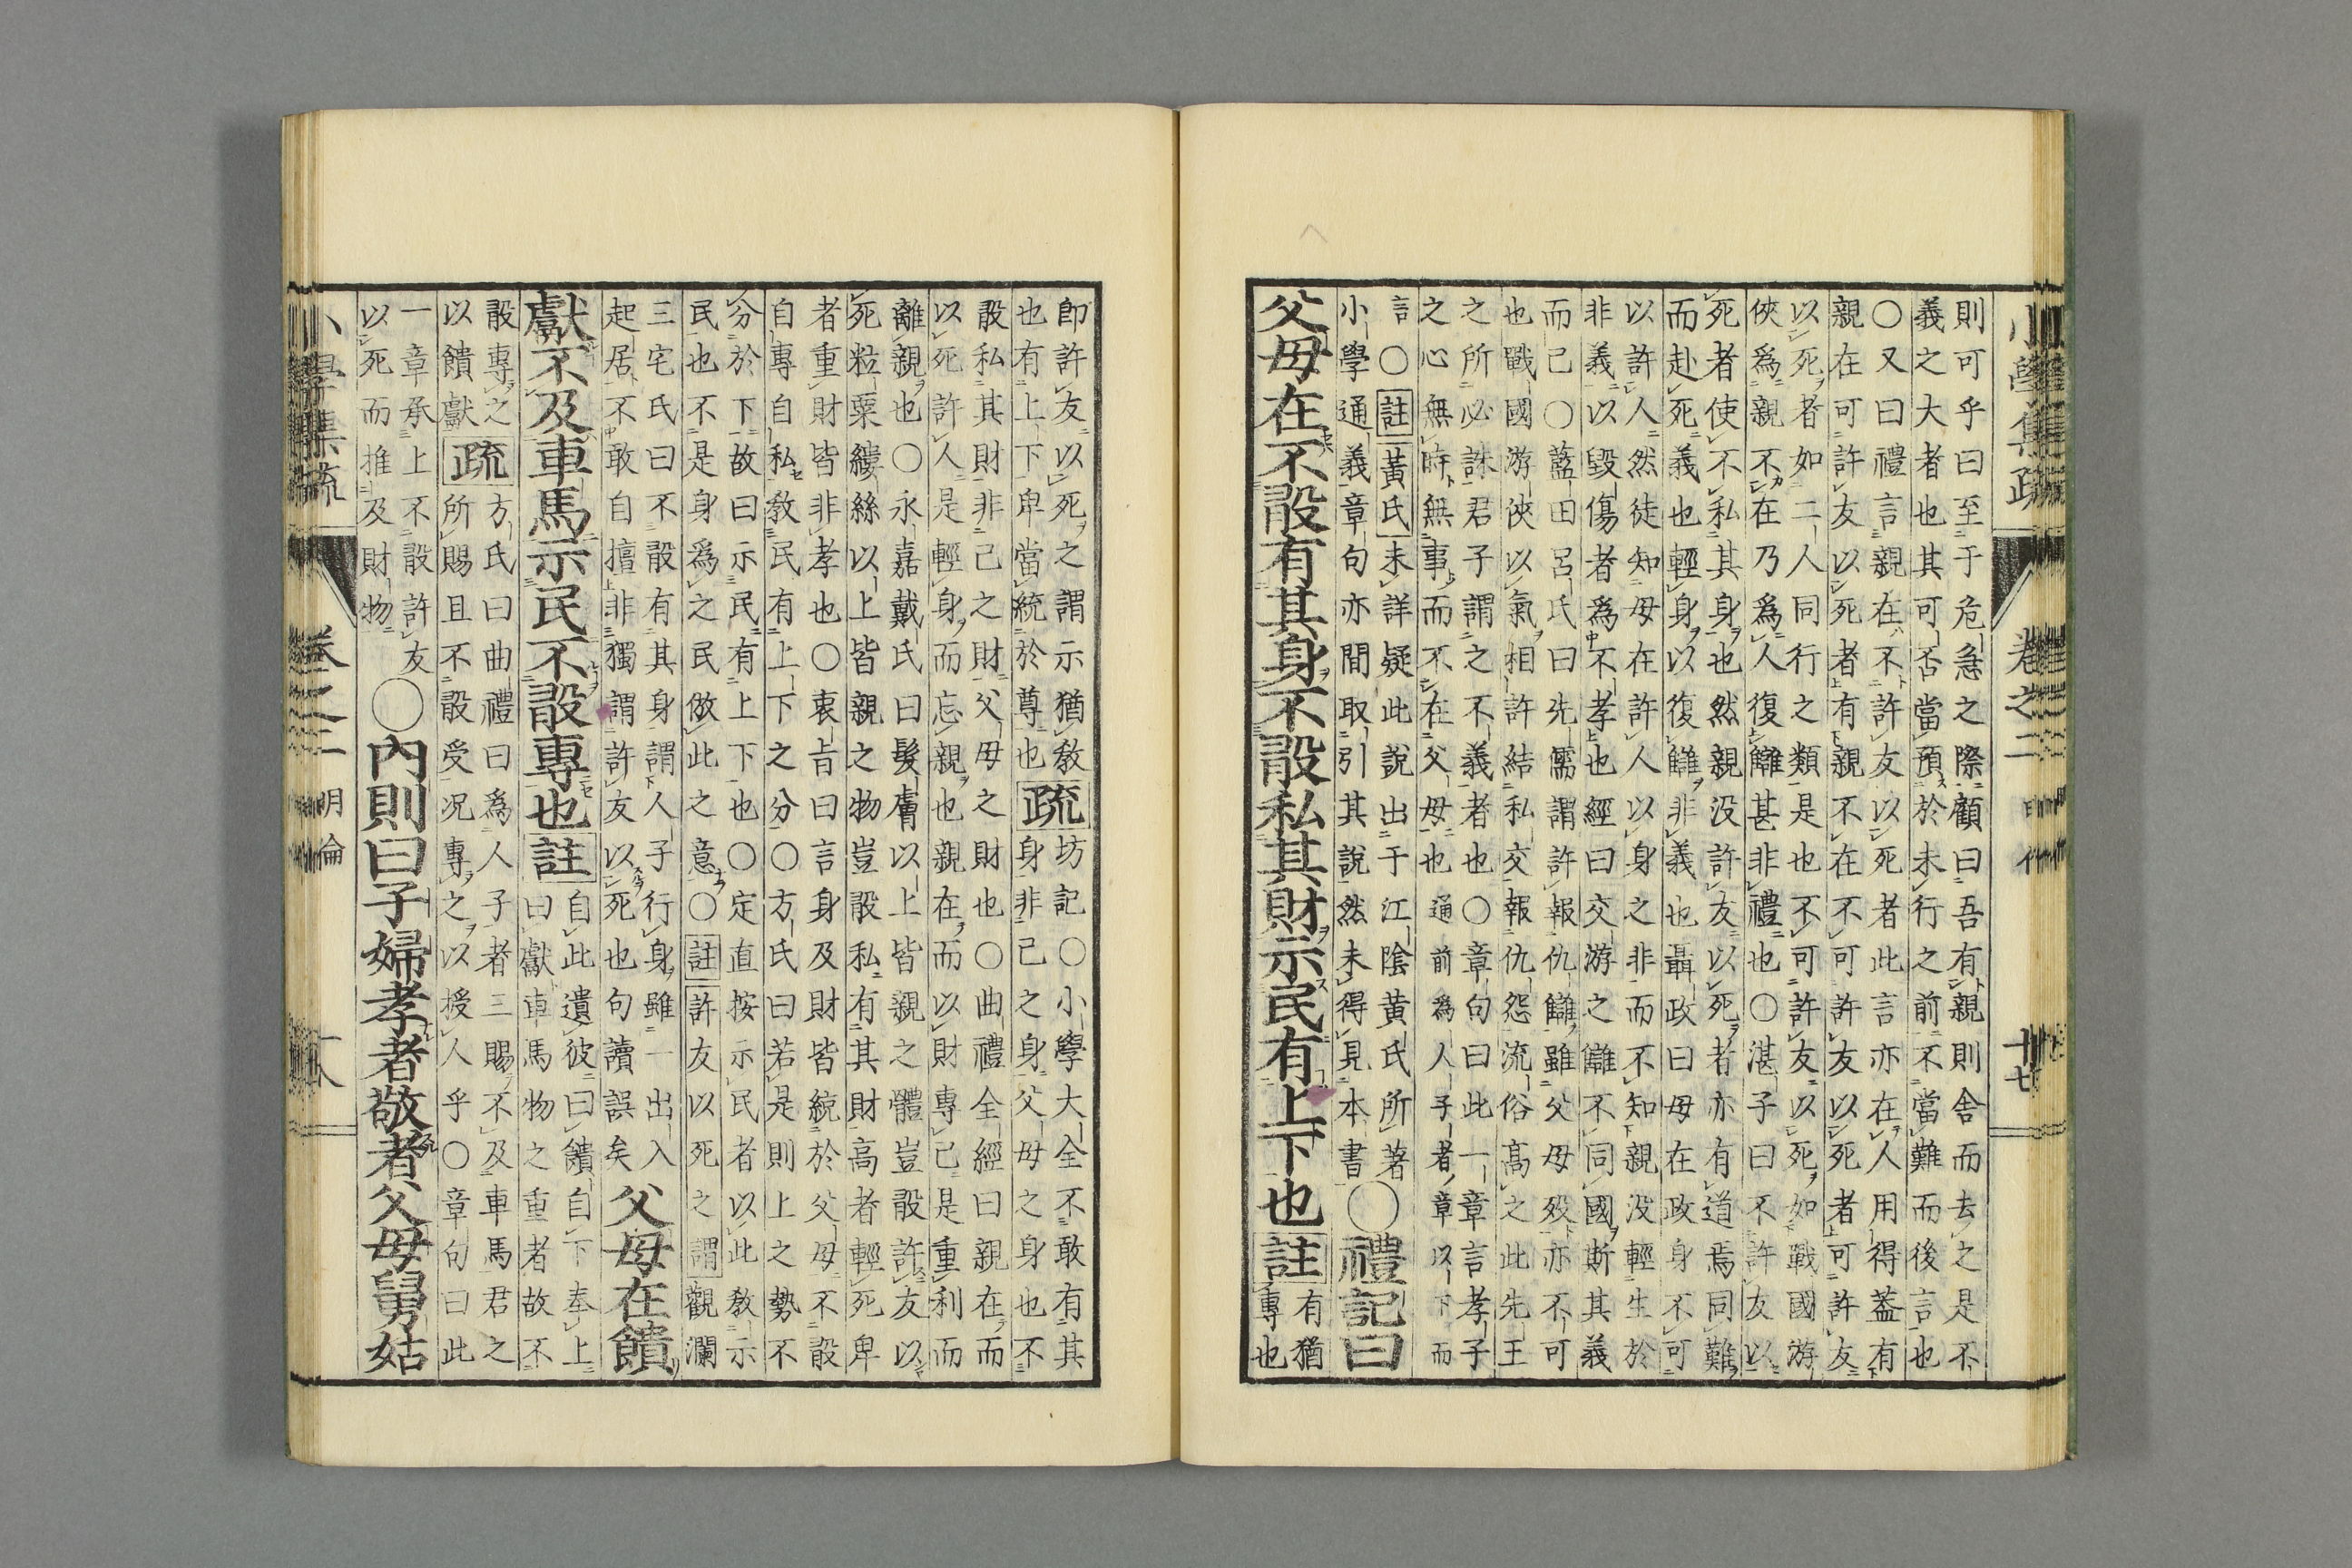 小學集疏 卷之二 明倫 十七
則可乎曰至于危急之際顧曰吾有親則舍而去之是不
義之大者也其可否當預於未行之前不當難而後言也
○又曰禮言親在不許友以死者此言亦在人用得蓋有
親在可許友以死者有親不在不可許友以死者可許友
以死者如二人同行之類是也不可許友以死如戰國游
俠爲親不在乃爲人復讎甚非禮也○湛子曰不許友以
死者使不私其身也然親没許友以死者亦有道焉同難
而赴死義也輕身以復讎非義也聶政曰母在政身不可
以許人然徒知母在許人以身之非而不知親没輕生於
非義以毀傷者爲不孝也經曰交游之讎不同國斯其義
而已○藍田呂氏曰先儒謂許報仇讎雖父母殁亦不可
也戰國游俠以氣相許結私交報仇怨流俗高之此先王
之所必誅君子謂之不義者也○章句曰此一章言孝子
之心無時無事而不在父母也通前爲人子者章以下而
言○註黃氏未詳疑此說出于江陰黄氏所著
小學通義章句亦間取引其說然未得見本書○禮記曰
父母在不敢有其身不敢私其財示民有上下也註有猶
專也
即許友以死之謂示猶敎也有上下卑當統於尊也疏坊記○小學大全不敢有其
身非己之身父母之身也不
敢私其財非己之財父母之財也○曲禮全經曰親在而
以死許人是輕身而忘親也親在而以財專己是重利而
離親也○永嘉戴氏曰髮膚以上皆親之體豈敢許友以
死粒粟縷絲以上皆親之物豈敢私有其財高者輕死卑
者重財皆非孝也○衷旨曰言身及財皆統於父母不敢
自專自私敎民有上下之分○方氏曰若是則上之勢不
分於下故曰示民有上下也○定直按示民者以此敎示
民也不是身爲之民倣此之意○註許友以死之謂觀瀾
三宅氏曰不敢有其身謂人子行身雖一出入
起居不敢自擅非獨謂許友以死也句讀誤矣父母在饋
獻不及車馬示民不敢專也註自此遺彼曰饋自下奉上
曰獻車馬物之重者故不
敢專之以饋獻疏方氏曰曲禮曰爲人子者三賜不及車馬君之
所賜且不敢受况專之以授人乎○章句曰此
一章承上不敢許友
以死而推及財物○內則曰子婦孝者敬者父母舅姑
小學集疏 卷之二 明倫 十八